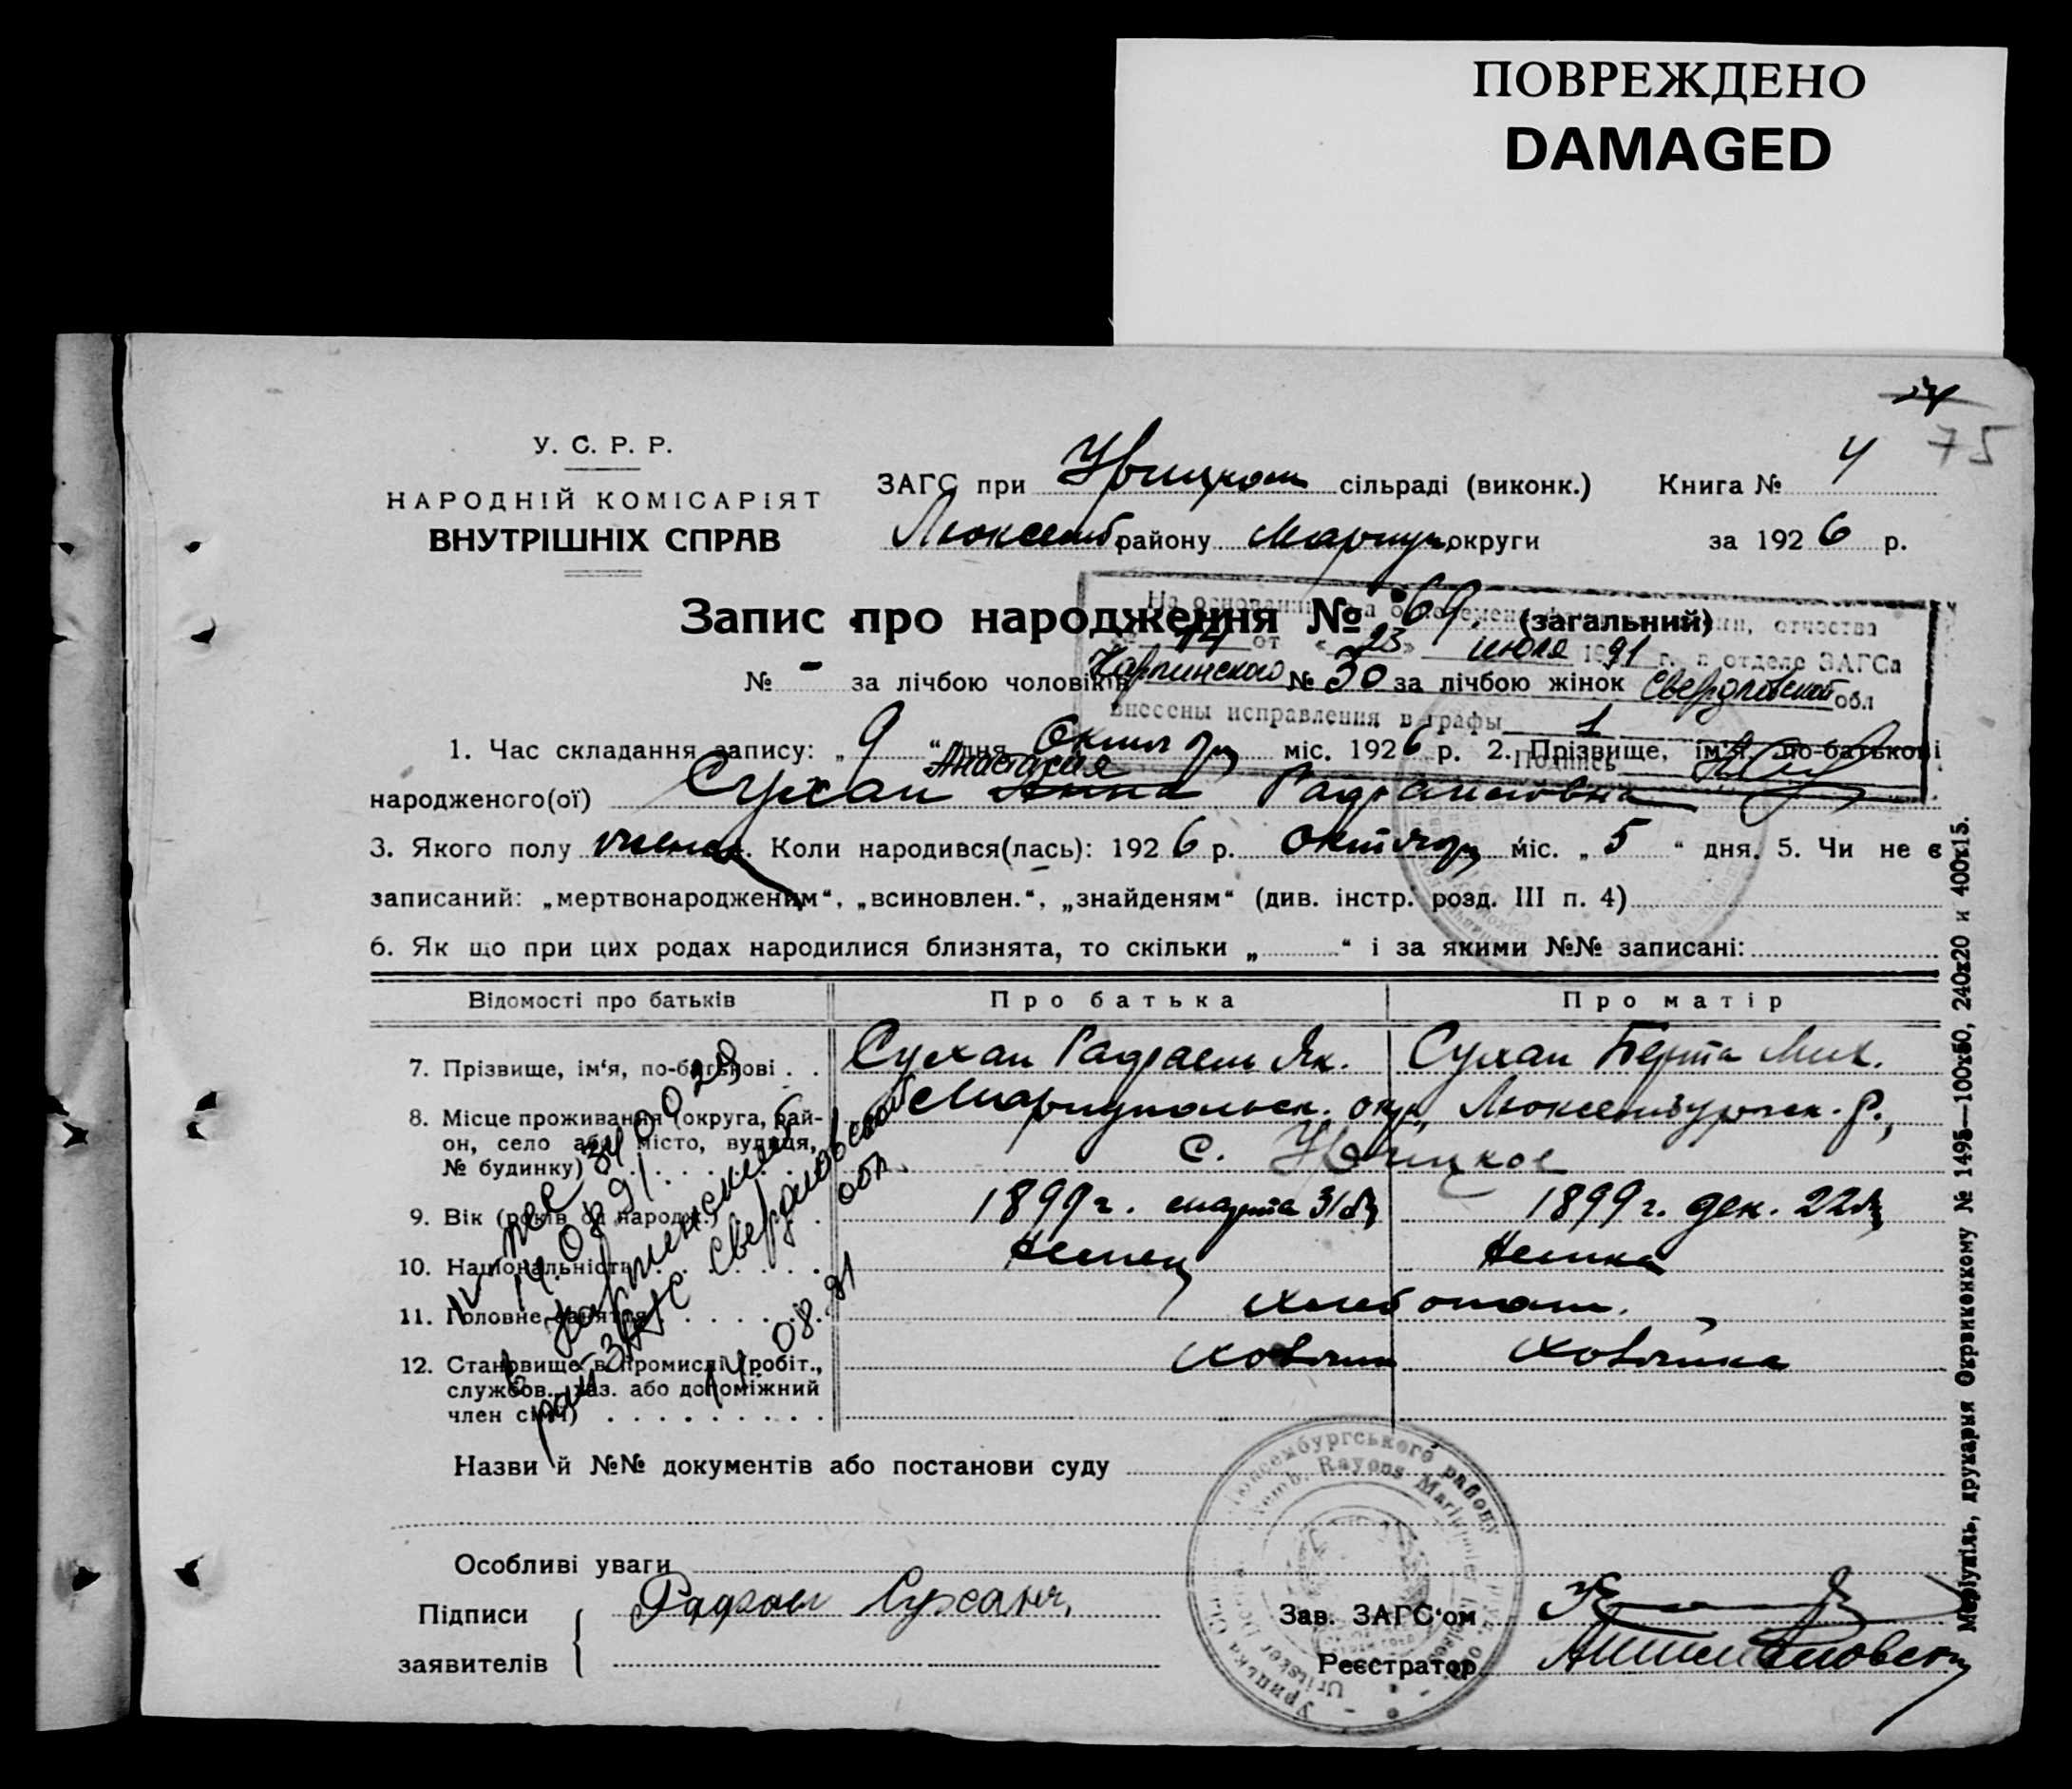 ПОВРЕЖДЕНО
DAMAGED
75
У. С. Р. Р.
НАРОДНІЙ КОМІСАРІЯТ
ВНУТРІШНІХ СПРАВ
ЗАГС при Урицком сільраді (виконк.) Книга № 4
Люксемб. району Мариуп. округи за 1926 р.
Запис про народження № 69 (загальний)
от «23» июля 1991 г. в отделе ЗАГСа
№ - за лічбою чоловіків № 30 за лічбою жінок
Карпинского Свердловской обл
внесены исправления в графы 1
Подпись
1. Час складання запису: „9“ дня Октября міс. 1926 р. 2. Прізвище, ім'я, по-батькові
Анастасия
народженого(ої) Сухан Анна Радаисовна
3. Якого полу женск. Коли народився(лась): 1926 р. Октября міс. „5“ дня. 5. Чи не є
записаний: „мертвонародженим“, „всиновлен.“, „знайденям“ (див. інстр. розд. III п. 4)
6. Як що при цих родах народилися близнята, то скільки „ “ і за якими №№ записані:
Відомості про батьків Про батька Про матір
7. Прізвище, ім‘я, по-батькові . . Сухан Як. Сухан Берта Мих.
8. Місце проживання (округа, рай-
он, село або місто, вулиця,
№ будинку) Мариупольск. окр., Люксембургск. р.,
с. Урицкое
9. Вік (років од народж.) 1899 г. марта 31 дн 1899 г. дек. 22 дн
10. Національність Немец Немка
11. Головне заняття Хлебопаш.
12. Становище в промислі (робіт.,
службов., хаз. або допоміжний
член сім'ї) хозяин хозяйка
14.08.91
Карпинский
рай ЗАГС Свердловской обл.
14.08.91
Назви й №№ документів або постанови суду
Особливі уваги
Підписи
заявителів
Зав. ЗАГС'ом
Реєстратор
Маріупіль, друкарня Окрвиконкому № 1495—100х50, 240х20 и 400х15.